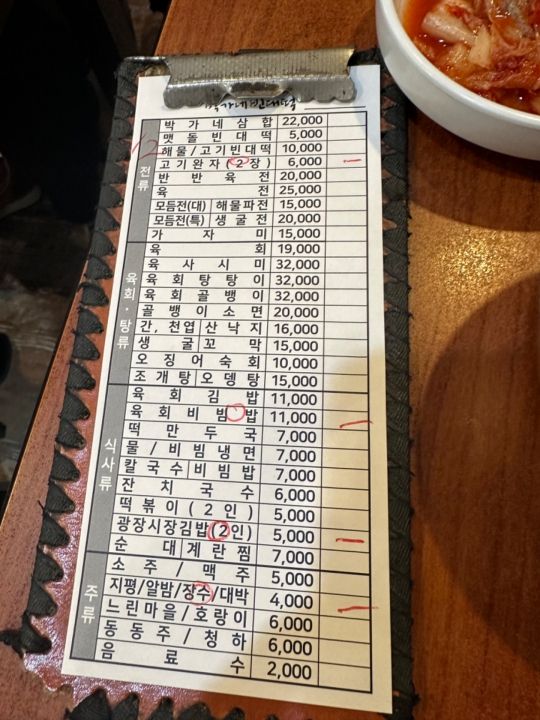 박가네빈대떡
12
전류
박가네삼합 22,000
맷돌빈대떡 5,000
해물/고기빈대떡 10,000
고기완자(2장) 6,000
반반육전 20,000
육전 25,000
모듬전(대) 해물파전 15,000
모듬전(특) 생굴전 20,000
가자미 15,000
육회·탕류
육회 19,000
육사시미 32,000
육회탕탕이 32,000
육회골뱅이 32,000
골뱅이소면 20,000
간,천엽 산낙지 16,000
생굴꼬막 15,000
오징어숙회 10,000
조개탕 오뎅탕 15,000
식사류
육회김밥 11,000
육회비빔밥 11,000
떡만두국 7,000
물/비빔냉면 7,000
칼국수 비빔밥 7,000
잔치국수 6,000
떡볶이(2인) 5,000
광장시장김밥(2인) 5,000
순대 계란찜 7,000
주류
소주/맥주 5,000
지평/알밤/장수/대박 4,000
느린마을/호랑이 6,000
동동주/청하 6,000
음료수 2,000